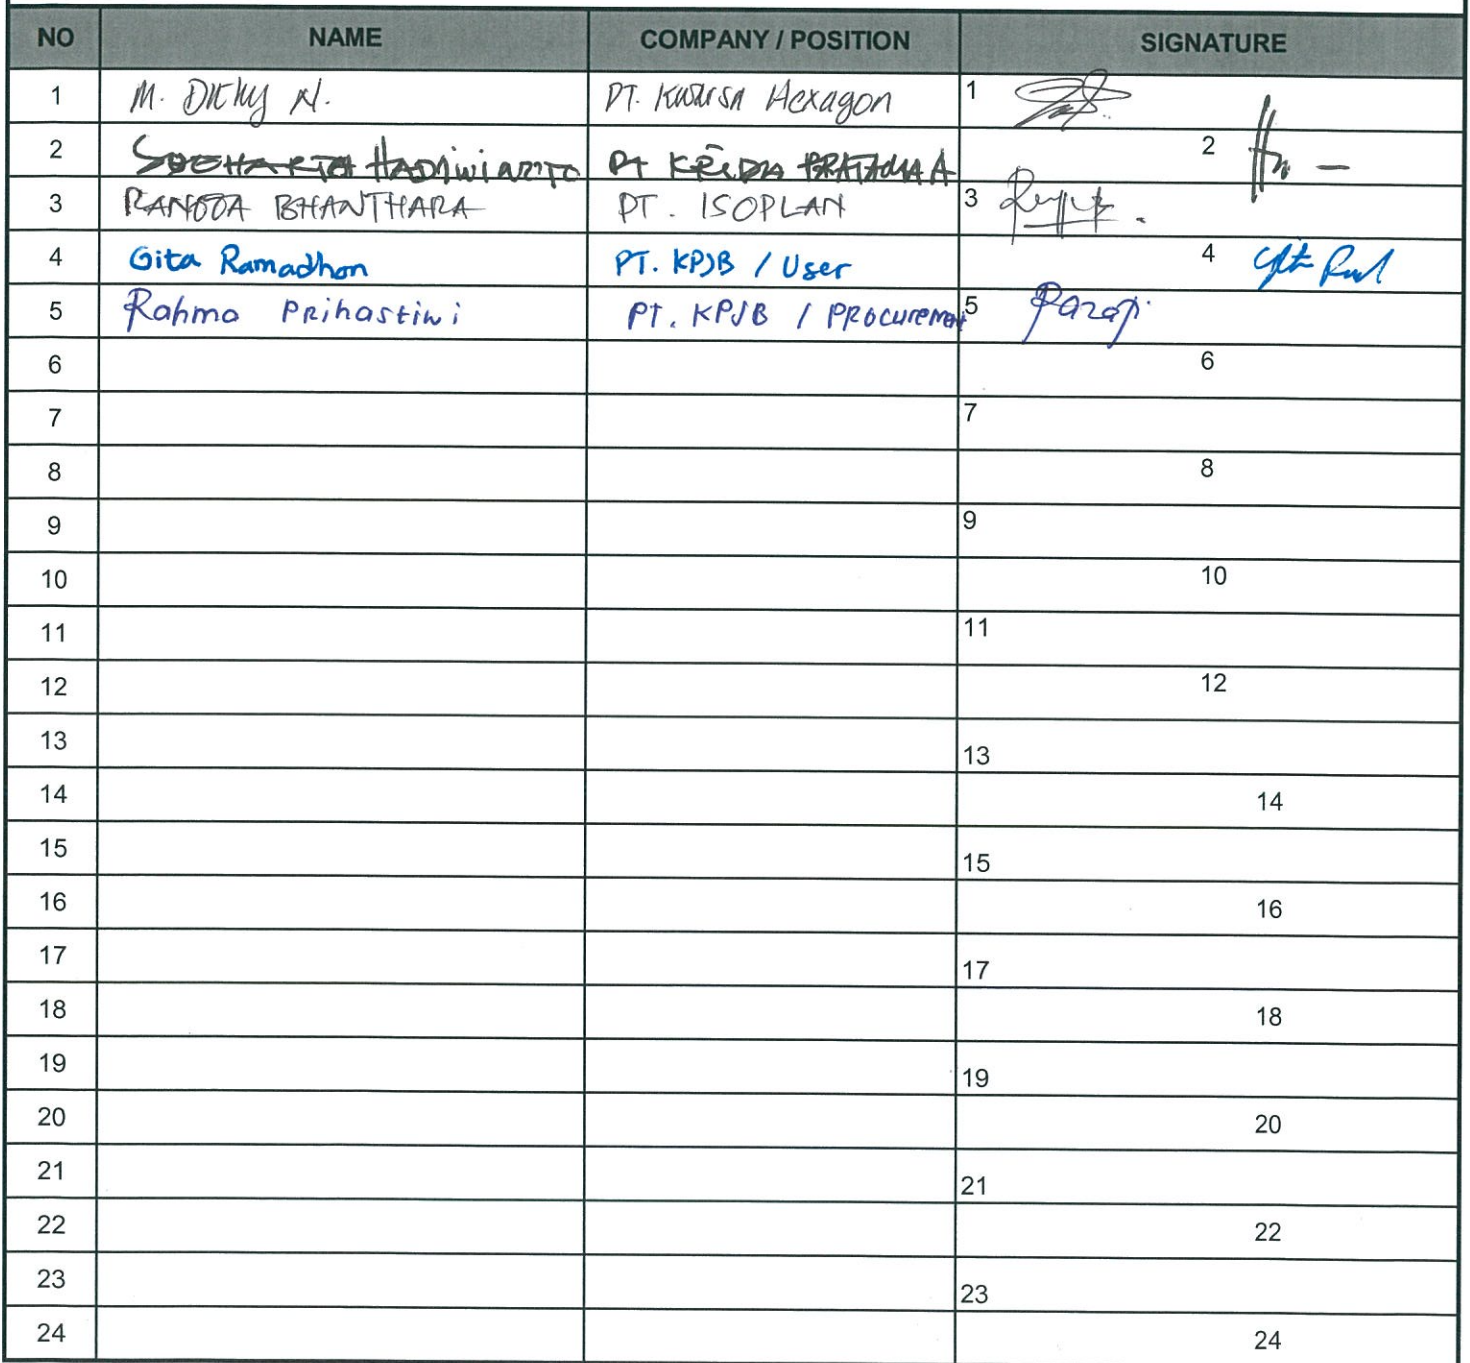 NO NAME COMPANY / POSITION SIGNATURE
1 M. Dicky N. PT. Kwarsa Hexagon 1
2 HADIWIARTO PT PRATAMA 2
3 RANGGA BHANTHARA PT. ISOPLAN 3
4 Gita Ramadhan PT. KPJB / User 4
5 Rahma Prihastiwi PT. KPJB / Procurement 5
6 6
7 7
8 8
9 9
10 10
11 11
12 12
13 13
14 14
15 15
16 16
17 17
18 18
19 19
20 20
21 21
22 22
23 23
24 24